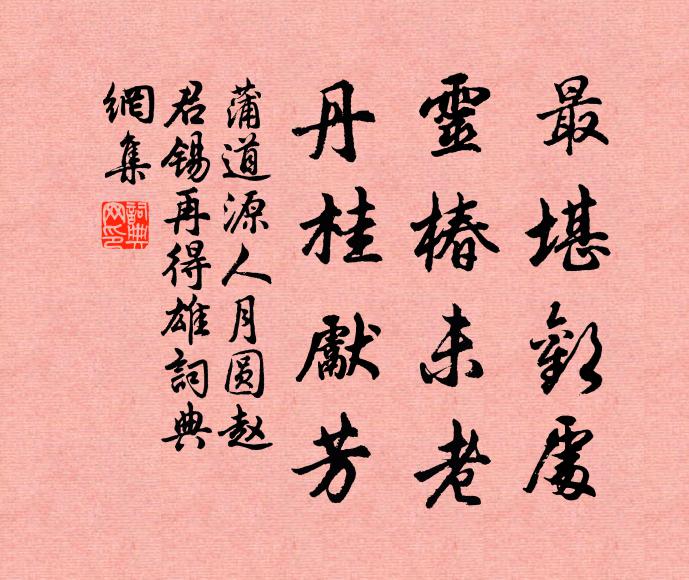 最堪歡處
靈椿未老
丹桂獻芳
蒲道源人月圆赵
君锡再得雄詞典
網集
詞典網印